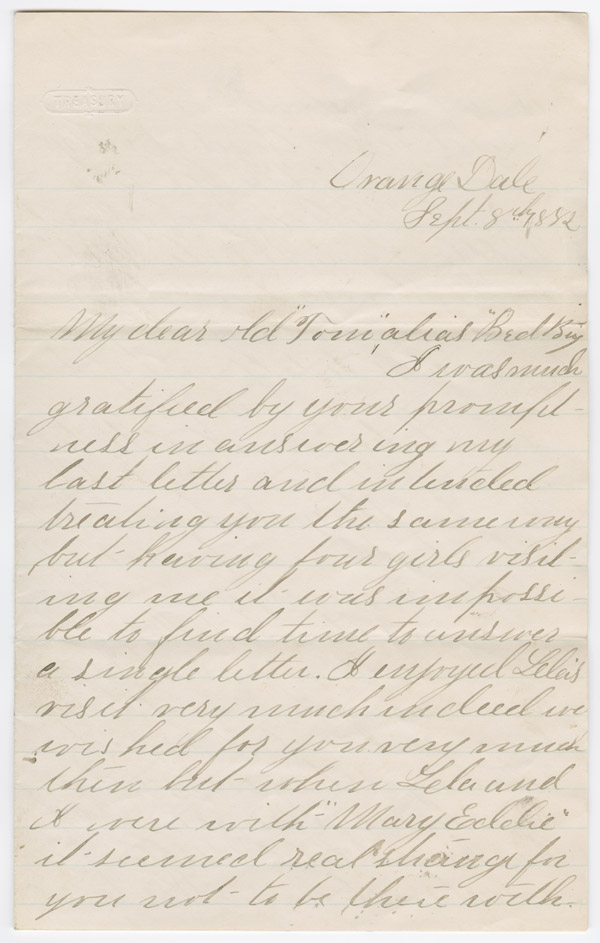 TREASURY
Orange Dale
Sept. 8th, 1882
My dear old "Tom", alias "Bed Bug"
I was much
gratified by your prompt-
ness in answering my
last letter and intended
treating you the same way
but having four girls visit-
ing me it was impossi-
ble to find time to answer
a single letter. I enjoyed Lela's
visit very much indeed we
wished for you very much
then but when Lela and
I were with "Mary Eddie"
it seemed real strange for
you not to be there with.